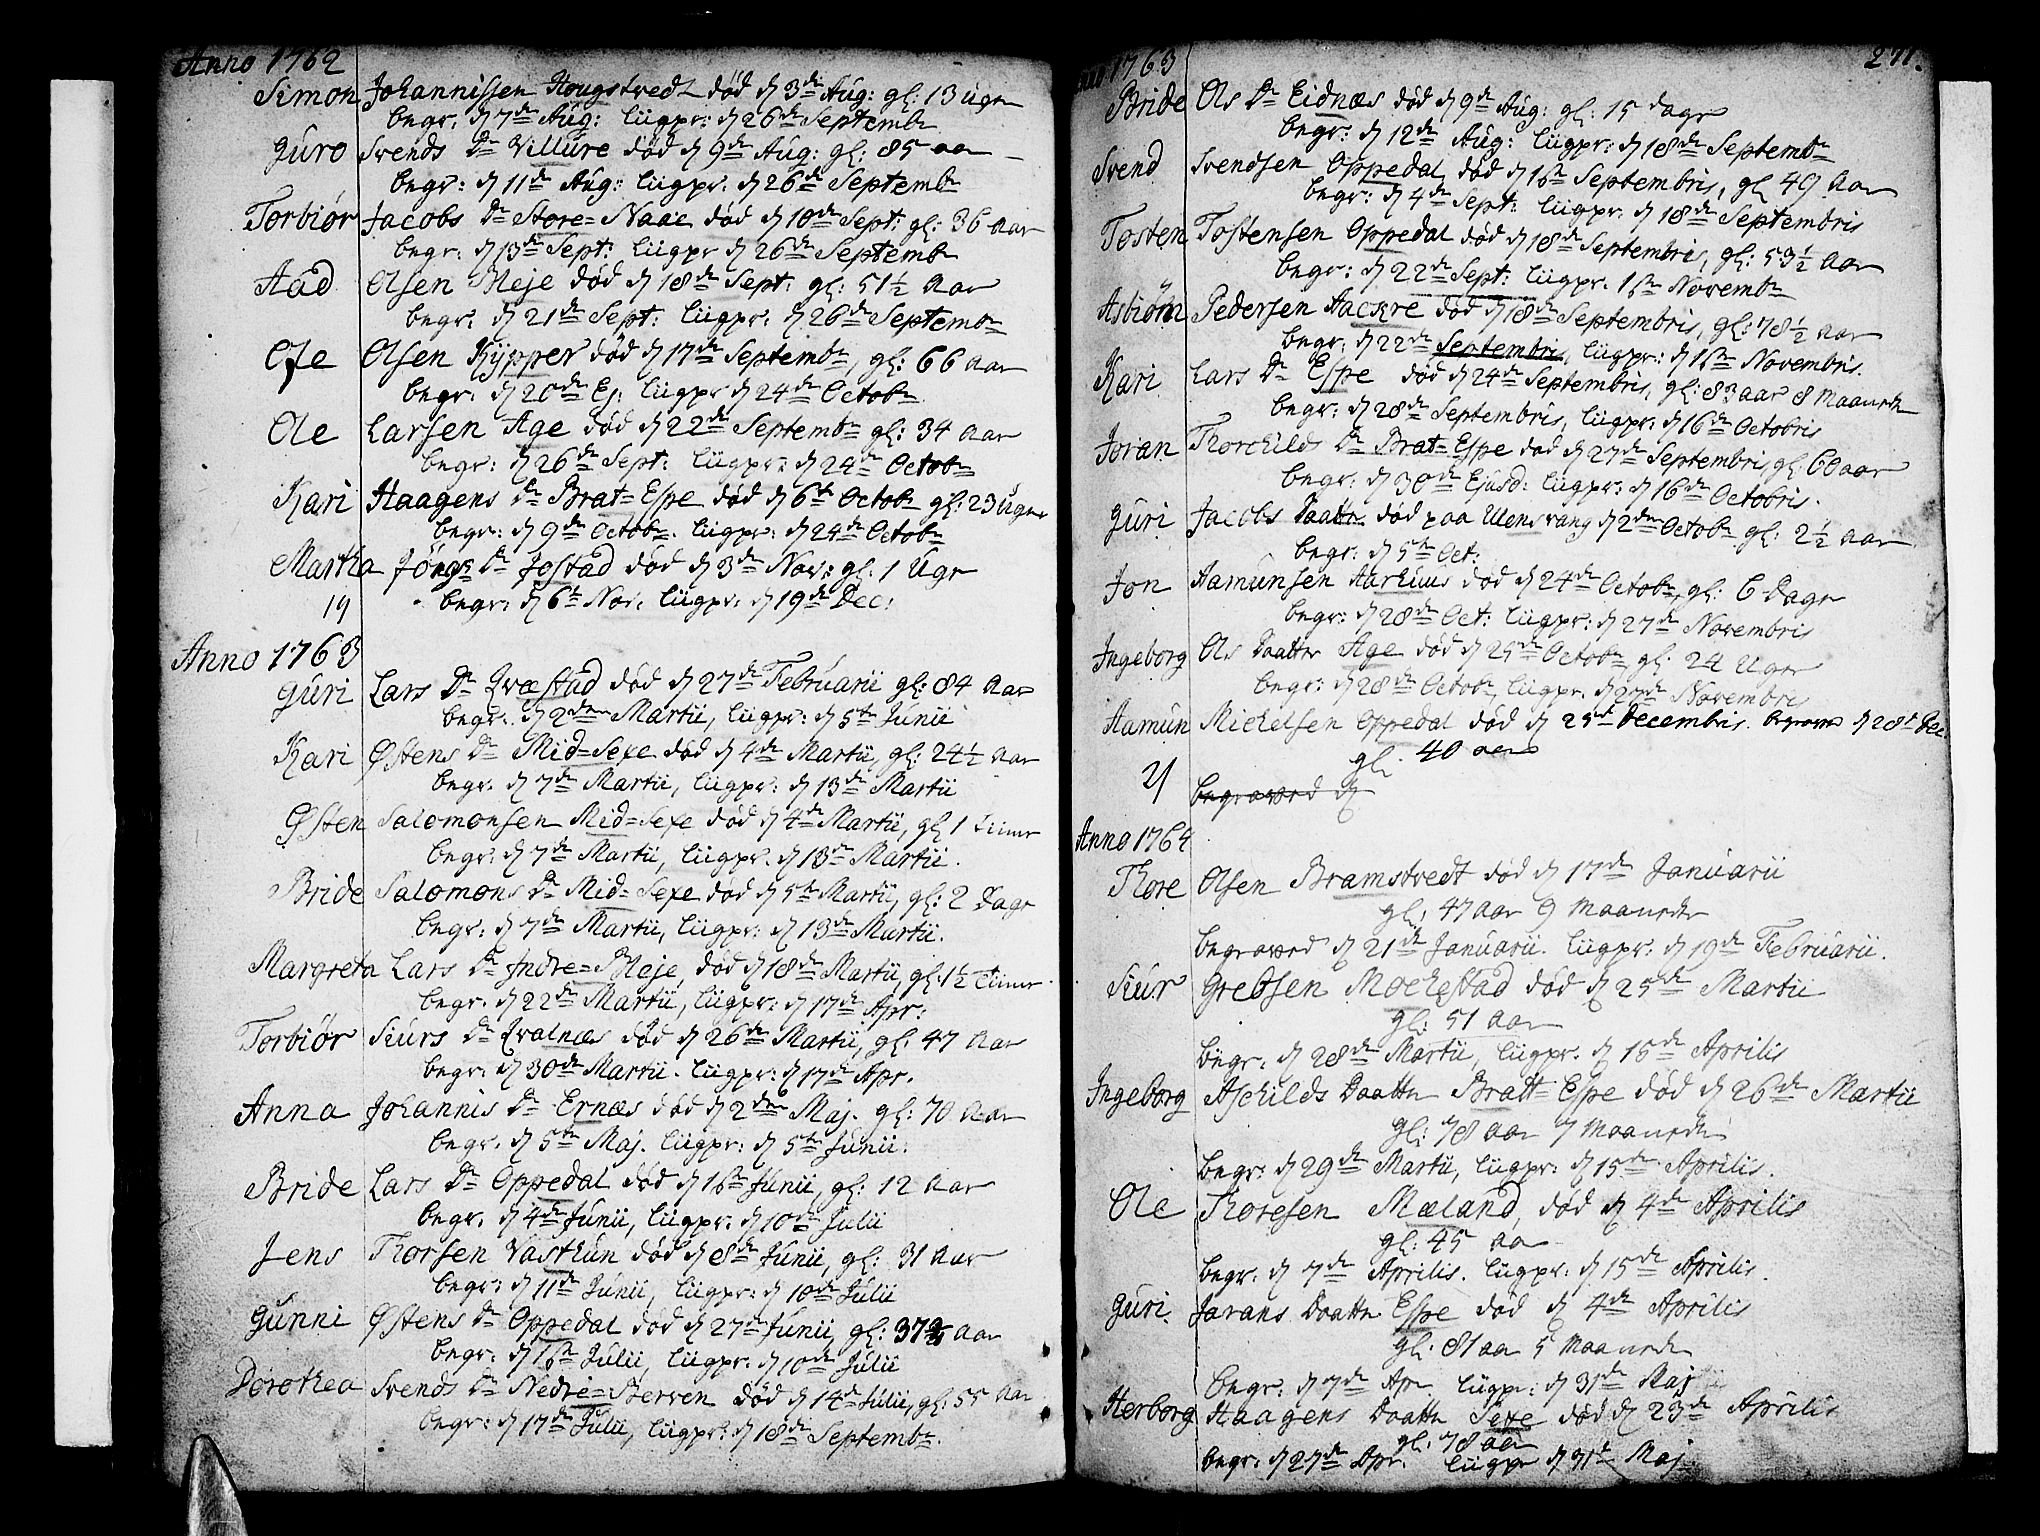 Anno 1762
Simon Johannissen Hougstvedt død d 3de Aug: gl: 13 ugr
begr: d 7de Aug: liigpr: d 26de Septembr
Guro Svends Dr Villure død d 9de Aug: gl: 85 aar
begr: d 11de Aug: liigpr. d 26de Septembr
Torbiør Jacobs Dr Store=Naae død d 10de Sept: gl: 36 Aar
begr: d 13de Sept: liigpr d 26de Septembr
Aad Olsen Meje død d 18de Sept: gl: 51½ Aar
begr: d 21de Sept: liigpr: d 26de Septembr
Ole Olsen Kypper død d 17de Septembr, gl: 66 Aar
begr: d 20de Ej: liigpr d 24de Octobr
Ole Larsen Age død d 22de Septembr gl: 34 Aar
begr: d 26de Sept: liigpr: d 24de Octobr
Kari Haagens Dr Brat=Espe død d 6te Octobr gl: 23 Ugr
begr: d 9de Octobr. liigpr: d 24de Octobr
Martha Jöns Dr Jostad død d 3de Nov: gl: 1 Ugr
begr: d 6te Nov: liigpr: d 19de Dec:
19
Anno 1763
Guri Lars Dr Qvæstad død d 27de Februarii gl: 84 Aar
begr: d 2den Martii, liigpr: d 5te Junii
Kari Østens Dr Mid=Sexe død d 4de Martii, gl: 24½ Aar
begr. d 7de Martii, liigpr: d 13de Martii
Østen Salomonsen Mid=Sexe død d 4de Martii, gl 1 Time
begr: d 7de Martii, liigpr. d 13de Martii.
Bride Salomons Dr Mid=Sexe død d 5te Martii, gl: 2 Dagr
begr: d 7de Martii, liigpr: d 13de Martii.
Margreta Lars Dr Indre=Meje død d 18de Martii, gl: 1½ Timr
begr. d 22de Martii, liigpr: d 17de Apr:
Torbiør Siurs Dr Qvalnæs død d 26de Martii, gl: 47 Aar
begr: d 30de Martii. liigpr: d 17de Apr.
Anna Johannis Dr Ernæs død d 2den Maj. gl: 70 Aar
begr. d 5te Maj. liigpr: d 5te Junii.
Bride Lars Dr Oppedal død d 1ste Junii, gl: 12 Aar
begr. d 4de Junii, liigpr: d 10de Julii
Jens Thorsen Vasthun død d 8de Junii, gl: 31 Aar
begr: d 11te Junii, liigpr: d 10de Julii
Gunni Østens Dr Oppedal død d 27de Junii, gl: 37 Aar
begr: d 1ste Julii, liigpr: d 10de Julii
Dorothea Svends Dr Nedre=Berven død d 14de Julii, gl: 55 Aar
begr: d 17de Julii, liigpr: d 18de Septembr.
1763 271.
Bride Ols Dr Eidnæs død d 9de Aug: gl: 15 dagr
begr: d 12de Aug: liigpr: d 18de Septembr
Svend Svendsen Oppedal død d 1ste Septembris, gl 49 Aar
begr: d 4de Sept: liigpr: d 18de Septembris
Tosten Tostensen Oppedal død d 18de Septembris, gl: 53½ Aar
begr: d 22de Sept: liigpr. 1ste Novembr
Asbiörn Pedersen Aackre død d 18de Septembris, gl: 78½ aar
begr: d 22de Septembris, liigpr: d 1ste Novembris.
Kari Lars Dr Espe død d 24de Septembris, gl: 83 aar 8 Maaneder
begr: d 28de Septembris, liigpr: d 16de Octobris
Joran Thorchilds Dr Brat=Espe død d 27de Septembris, gl: 60 aar
begr: d 30de Ejusd: liigpr: d 16de Octobris.
Guri Jacobs Daattr død paa Ulensvang d 2den Octobr gl: 2½ Aar
begr: d 5te Oct:
Jon Aamunsen Aarhuus død d 24de Octobr, gl: 6 Dagr
begr: d 28de Oct: liigpr: d 27de Novembris
Ingeborg Ols Daatter Age død d 25de Octobr gl: 24 Ugr
begr: d 28de Octobr, liigpr. d 27de Novembris
Aamun Michelsen Oppedal død d 25de Decembris. begraven d 28de Dec:
gl. 40 aar
21 begraved d
Anno 1764
Thore Olsen Bramstvedt død d 17de Januarii
gl: 47 Aar 9 Maaneder
begraved d 21de Januarii. liigpr: d 19de Februarii.
Siur Grebsen Mochestad død d 25de Martii
gl: 51 Aar
begr. d 28de Martii, liigpr. d 15de Aprilis
Ingeborg Aschilds Daattr Bratt=Espe død d 26de Martii
gl: 78 aar 7 Maaneder
begr: d 29de Martii, liigpr: d 15de Aprilis.
Ole Thoresen Mæland, død d 4de Aprilis
gl: 45 aa
begr. d 7de Aprilis. liigpr: d 15de Aprilis.
Guri Jarans Daattr Espe død d 4de Aprilis
gl. 81 aar 5 Maaneder
begr: d 7de Apr. liigpr: d 31de Maj
Herborg Haagens Daattr Sexe død d 23de Aprilis
gl: 78 aar
begr: d 27de Apr. liigpr d 31te Maj